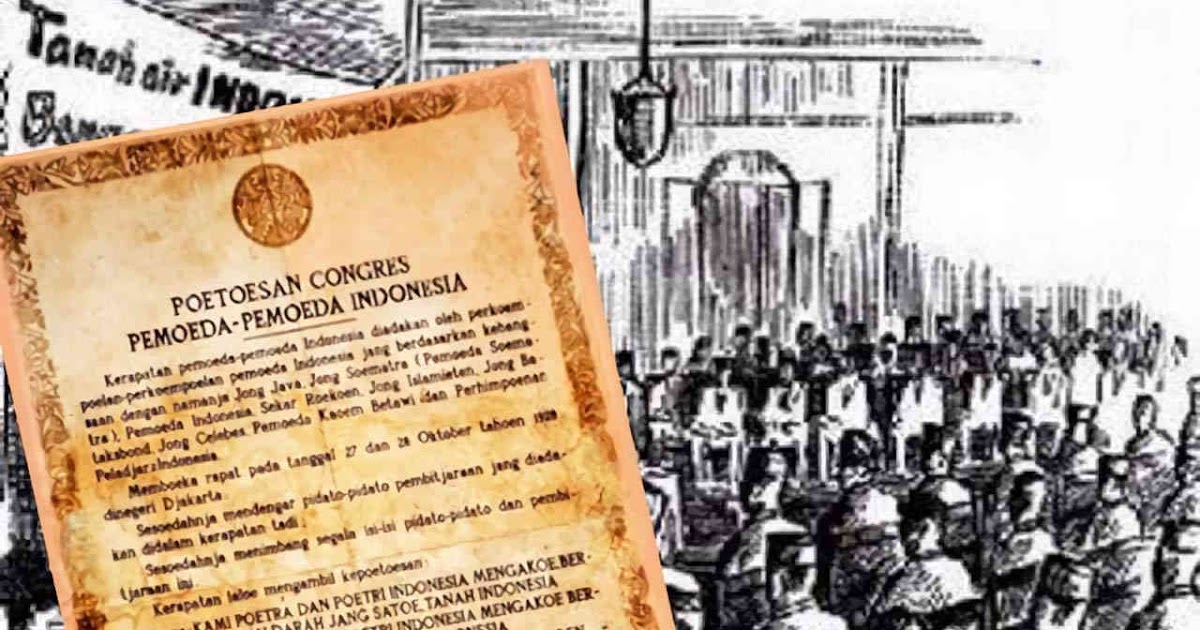 Tanah air INDO
POETOESAN CONGRES
PEMOEDA-PEMOEDA INDONESIA
Kerapatan pemoeda-pemoeda Indonesia diadakan oleh perkoem-
poelan-perkoempoelan pemoeda Indonesia jang berdasarkan kebang-
saan dengan namanja Jong Java, Jong Soematra (Pemoeda Soema-
tra), Pemoeda Indonesia Sekar Roekoen, Jong Islamieten, Jong Ba-
taksbond, Jong Celebes, Pemoeda Kaoem Betawi dan Perhimpoenan
Peladjar2 Indonesia.
Memboeka rapat pada tanggal 27 dan 28 Oktober tahoen 1928
dinegeri Djakarta.
Sesoedahnja mendengar pidato-pidato pembitjaraan jang diada-
kan didalam kerapatan tadi;
Sesoedahnja menimbang segala isi-isi pidato-pidato dan pembi-
tjaraan ini.
Kerapatan laloe mengambil kepoetoesan:
KAMI POETRA DAN POETRI INDONESIA MENGAKOE BER-
DARAH JANG SATOE, TANAH INDONESIA
INDONESIA MENGAKOE BER-